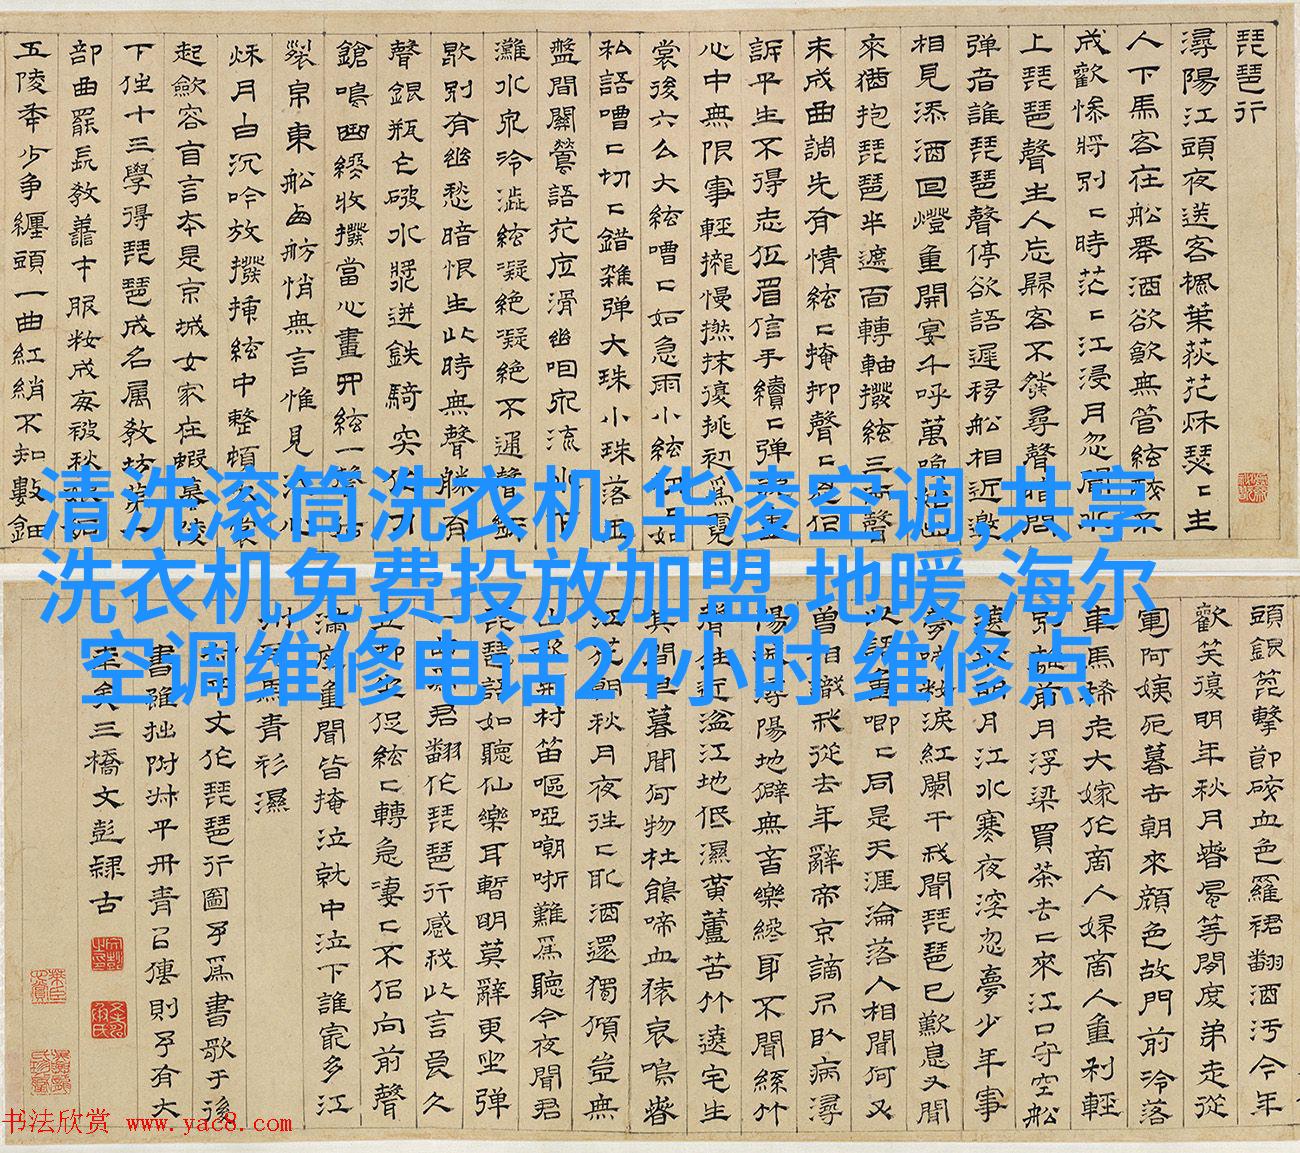 琵琶行
潯陽江頭夜送客楓葉荻花秌瑟〻主
人下馬客在船舉酒欲飲無管絃醉不
成歡慘將別〻時茫〻江浸月忽聞水
上琵琶聲主人忘歸客不發尋聲暗問
弹者誰琵琶聲停欲語遲移船相近邀
相見添酒回燈重開宴千呼萬喚始出
來猶抱琵琶半遮面轉軸撥絃三兩聲
未成曲調先有情絃〻掩抑聲〻思似
訴平生不得志低眉信手續〻弹説盡
心中無限事輕攏慢撚抹復挑初爲霓
裳後六么大絃嘈〻如急雨小絃切〻如
私語嘈〻切〻錯雜弹大珠小珠落玉
盤間關鶯語花底滑幽咽泉流水下
灘水泉冷澁絃凝絶凝絶不通聲暫
歇別有幽愁暗恨生此時無聲勝有
聲銀瓶乍破水漿迸鉄騎突出刀
鎗鳴曲終收撥當心畫四絃一聲如
裂帛東船西舫悄無言惟見江心
秌月白沉吟放撥揷絃中整頓衣裳
起歛容自言本是京城女家在蝦蟇陵
下住十三學得琵琶成名属教坊第一
部曲罷長教善才服粧成每被秋娘妬
五陵年少争纏頭一曲紅綃不知數鈿
清洗滚筒洗衣机,华凌空调,共享
洗衣机免费投放加盟,地暖,海尔
空调维修电话24小时 维修点
頭銀箆擊節碎血色羅裙翻酒汚今年
歡笑復明年秋月春風等閒度弟走從
軍阿姨死暮去朝來顔色故門前冷落
車馬稀老大嫁作商人婦商人重利輕
別離前月浮梁買茶去〻來江口守空船
遶船明月江水寒夜深忽夢少年事
夢啼粧淚紅闌干我聞琵琶已歎息又聞
此語重唧〻同是天涯淪落人相聞何必
曾相識我從去年辭帝京謫居臥病潯
陽城潯陽地僻無音樂終歲不聞絲竹
聲住近湓江地低濕黃蘆苦竹遶宅生
其間旦暮聞何物杜鵑啼血猿哀鳴春
江花朝秋月夜往〻取酒還獨傾豈無
山歌與村笛嘔啞嘲哳難爲聽今夜聞君
琵琶語如聽仙樂耳暫明莫辭更坐弹
一曲爲君翻作琵琶行感我此言良久
立却坐促絃〻轉急凄〻不似向前聲
滿座重聞皆掩泣就中泣下誰寃多江
州司馬青衫濕
文作琵琶行圖予爲書歌于後
書雖拙附平丹青以傳則予有大
幸矣三橋文彭隸古
书法欣赏 www.yac8.com